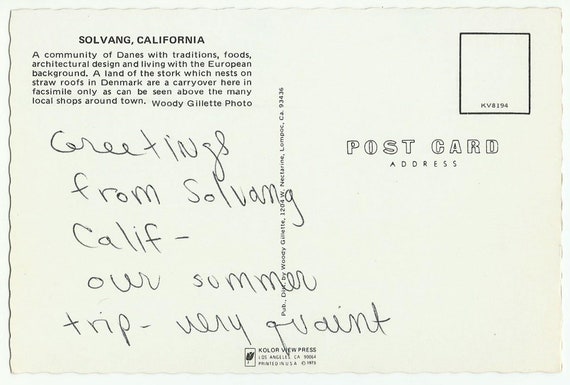 SOLVANG, CALIFORNIA
A community of Danes with traditions, foods,
architectural design and living with the European
background. A land of the stork which nests on
straw roofs in Denmark are a carryover here in
facsimile only as can be seen above the many
local shops around town. Woody Gillette Photo
KV8194
POST CARD
ADDRESS
Greetings
from Solvang
Calif-
our summer
trip- very quaint
Pub., Dist. by Woody Gillette, 1204 W. Nectarine, Lompoc, Ca. 93436
KOLOR VIEW PRESS
LOS ANGELES, CA 90064
PRINTED IN U.S.A. © 1975